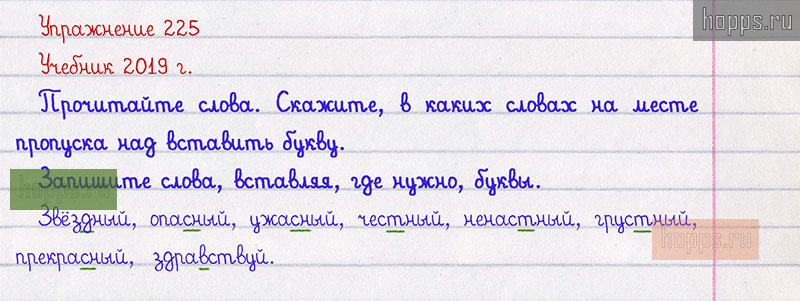 hopps.ru
Упражнение 225
Учебник 2019 г.
Прочитайте слова. Скажите, в каких словах на месте
пропуска над вставить букву.
Запишите слова, вставляя, где нужно, буквы.
hopps.ru
Звёздный, опасный, ужасный, честный, ненастный, грустный,
hopps.ru
прекрасный, здравствуй.